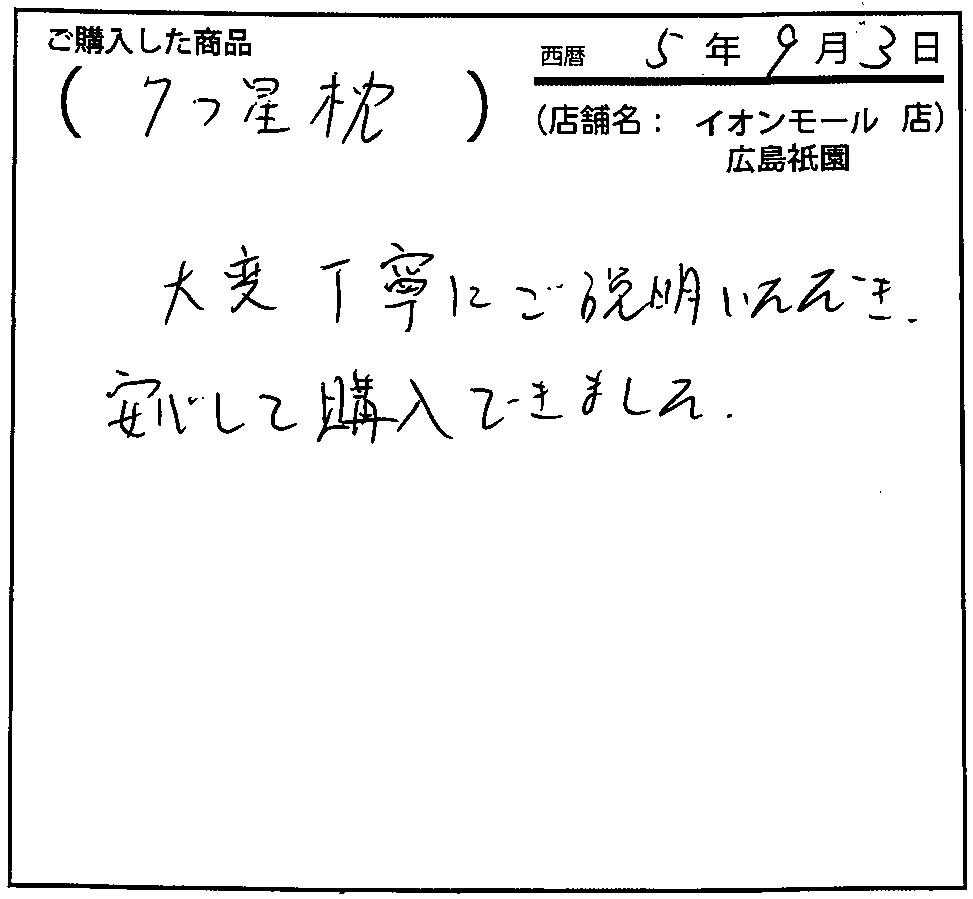 ご購入した商品
西暦 5年9月3日
(7つ星枕)
(店舗名: イオンモール 店)
広島祇園
大変丁寧にご説明いただき.
安心して購入できました.